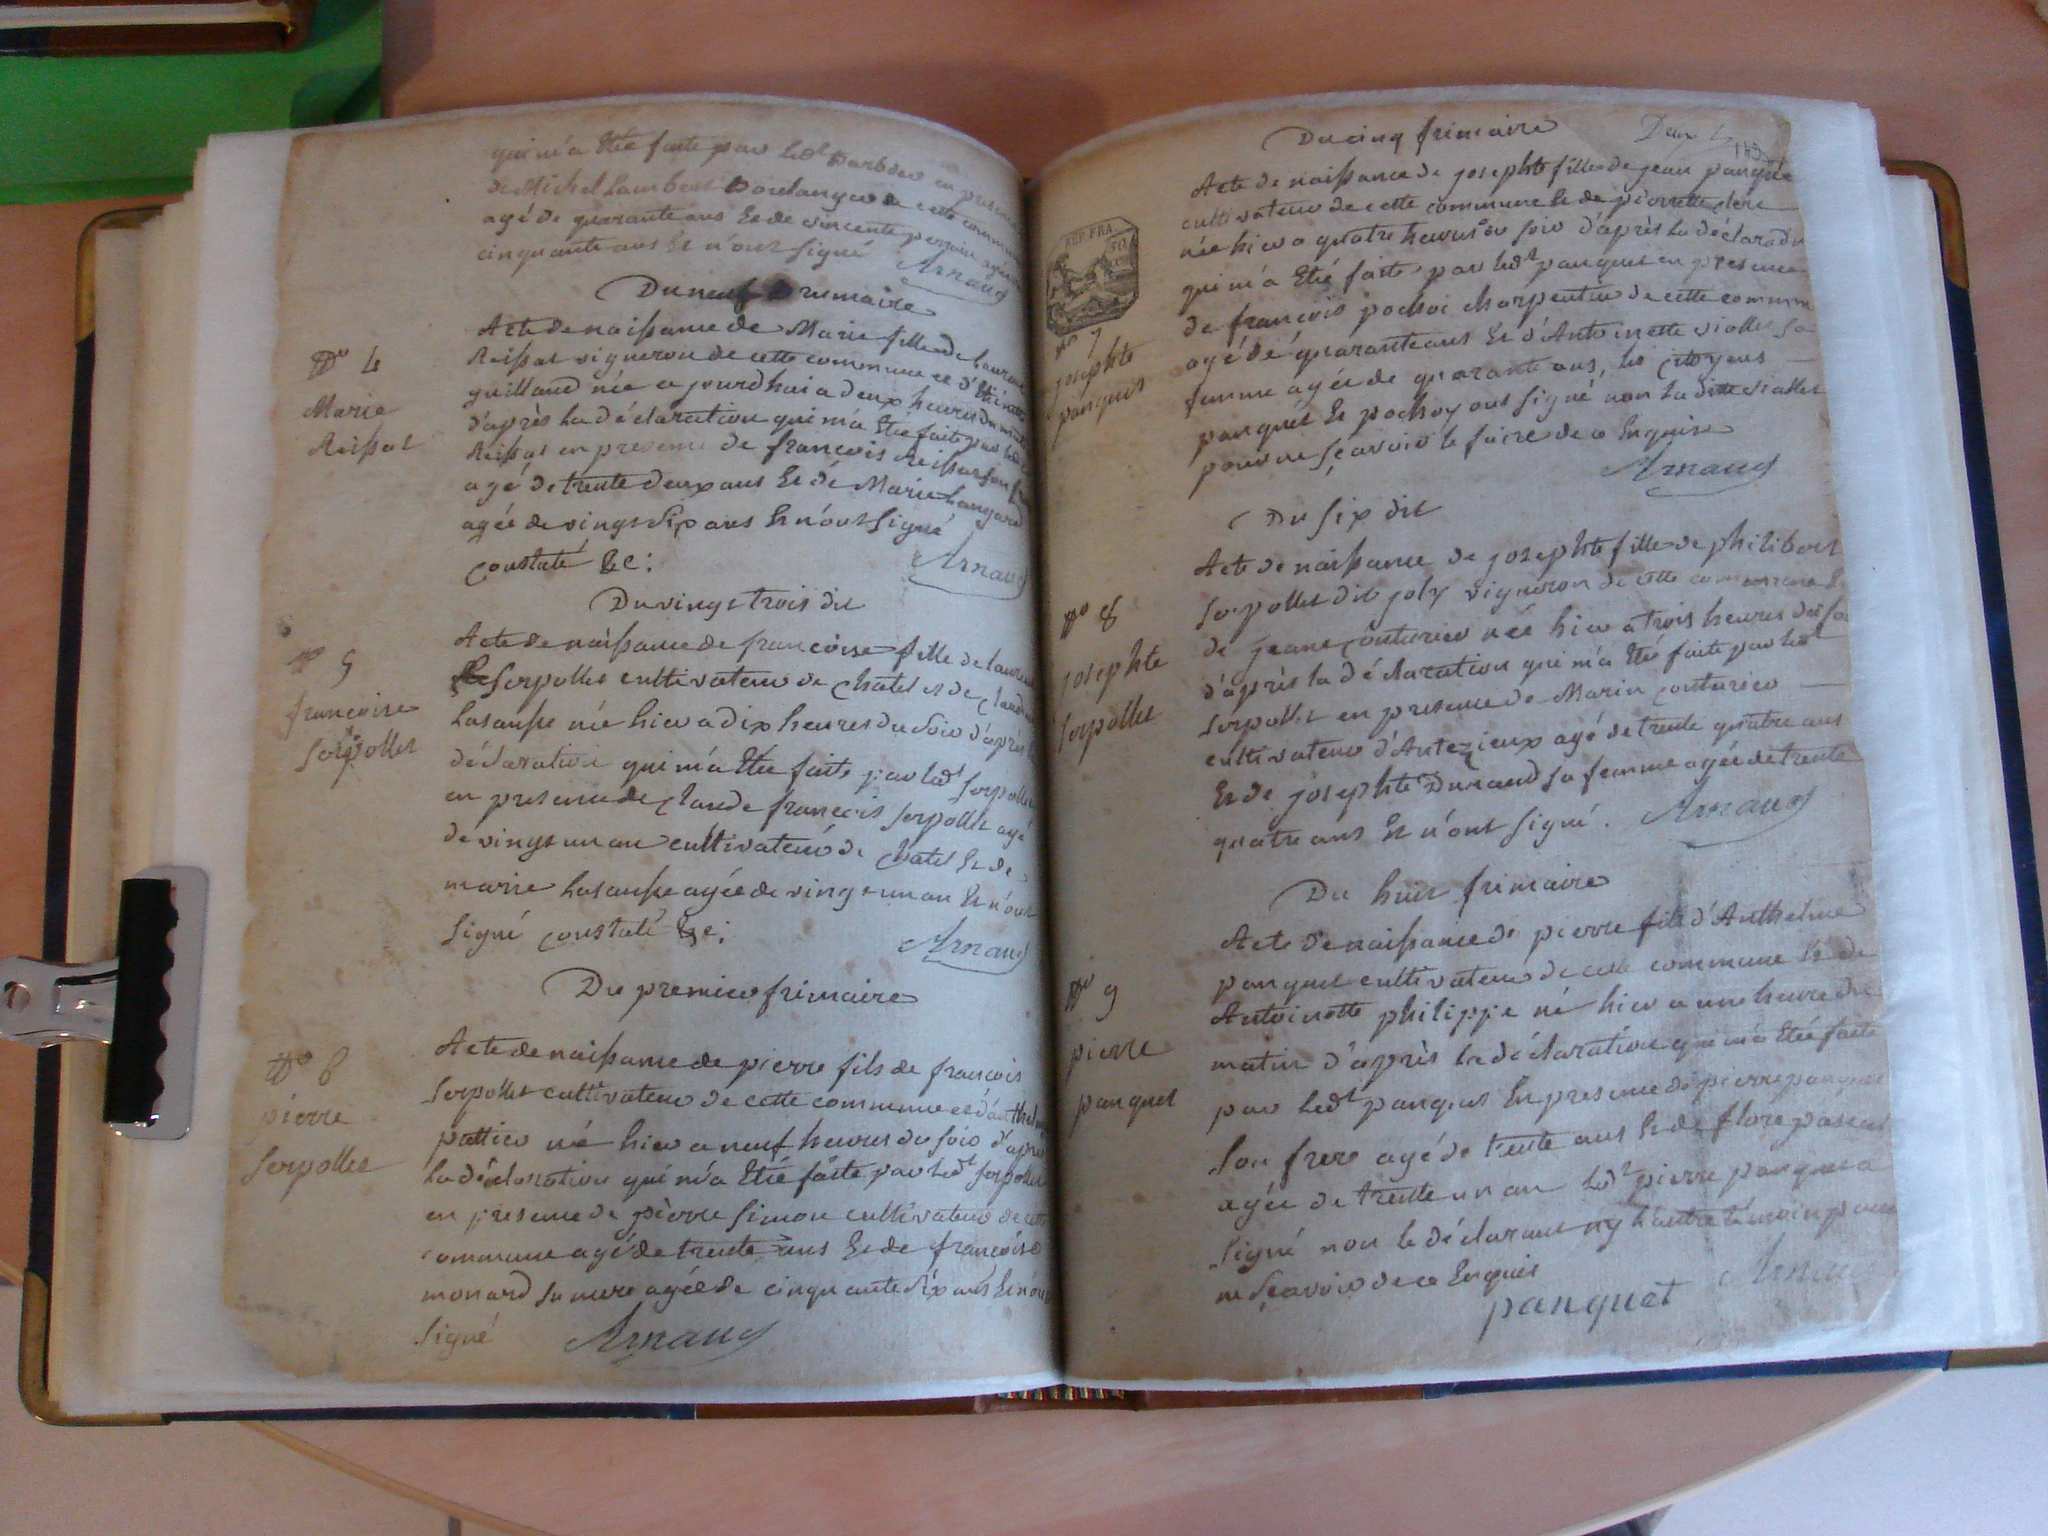 qui m'a Eté faite par led.t Barbou en presence
de Michel Lambert Boulanger de cette commune
agé de quarante ans Et de vincente perrin agée
cinquante ans Et n'ont signé Arnaud
Du neuf Brumaire
N.o 4
Marie
Reissat
Acte de naissance de Marie fille de Laurent
Reissat vigneron de cette commune et d'Etiennette
guilland née ce jourd'hui a deux heures du matin
d'après la déclaration qui m'a Eté faite par led.t
Reissat en presence de françois Reissat son frere
agé de trente deux ans Et de Marie Langard
agée de vingt six ans Et n'ont signé
constaté &c: Arnaud
Du vingt trois dit
N.o 5
francoise
Serpollet
Acte de naissance de francoise fille de laurent
Serpollet cultivateur de Chatel et de Claudine
Lasausse née hier a dix heures du soir d'après la
déclaration qui m'a Eté faite par led.t Serpollet
en presence de Claude françois Serpollet agé
de vingt un an cultivateur de Chatel Et de
marie Lasausse agée de vingt un an Et n'ont
signé constaté &c; Arnaud
Du premier frimaire
N.o 6
pierre
Serpollet
Acte de naissance de pierre fils de françois
Serpollet cultivateur de cette commune et d'anthelmette
puttier né hier a neuf heures du soir d'après
la déclaration qui m'a Eté faite par led.t Serpollet
en presence de pierre Simon cultivateur de cette
commune agé de trente ans Et de françoise
monard sa mere agée de cinquante six ans Et n'ont
signé Arnaud
Du cinq frimaire
REP. FRA.
50
N.o 7
josephte
panquet
Acte de naissance de josephte fille de jean panquet
cultivateur de cette commune Et de pierrette clere
née hier a quatre heures du soir d'après la déclaration
qui m'a Eté faite par led.t panquet en presence
de françois pochoi charpentier de cette commune
agé de quarante ans Et d'Antoinette viollet sa
femme agée de quarante ans, les citoyens
panquet Et pochoy ont signé non la dite viollet
pour ne sçavoir le faire de ce Enquise
Arnaud
Du six dit
N.o 8
josephte
Serpollet
Acte de naissance de josephte fille de philibert
Serpollet dit joly vigneron de cette commune Et
de jeane couturier née hier a trois heures du soir
d'après la déclaration qui m'a Eté faite par led.t
Serpollet en presence de Marin couturier
cultivateur d'Antezieux agé de trente quatre ans
Et de josephte Durand sa femme agée de trente
quatre ans Et n'ont signé. Arnaud
Du huit frimaire
N.o 9
pierre
panquet
Acte de naissance de pierre fils d'Anthelme
panquet cultivateur de cette commune Et de
Antoinette philippe né hier a une heure du
matin d'après la déclaration qui m'a Eté faite
par led.t panquet En presence de pierre panquet
son frere agé de trente ans Et de flore pascal
agée de trente un an led.t pierre panquet a
signé non le déclarant ny l'autre temoin pour
ne sçavoir de ce Enquis
panquet Arnaud